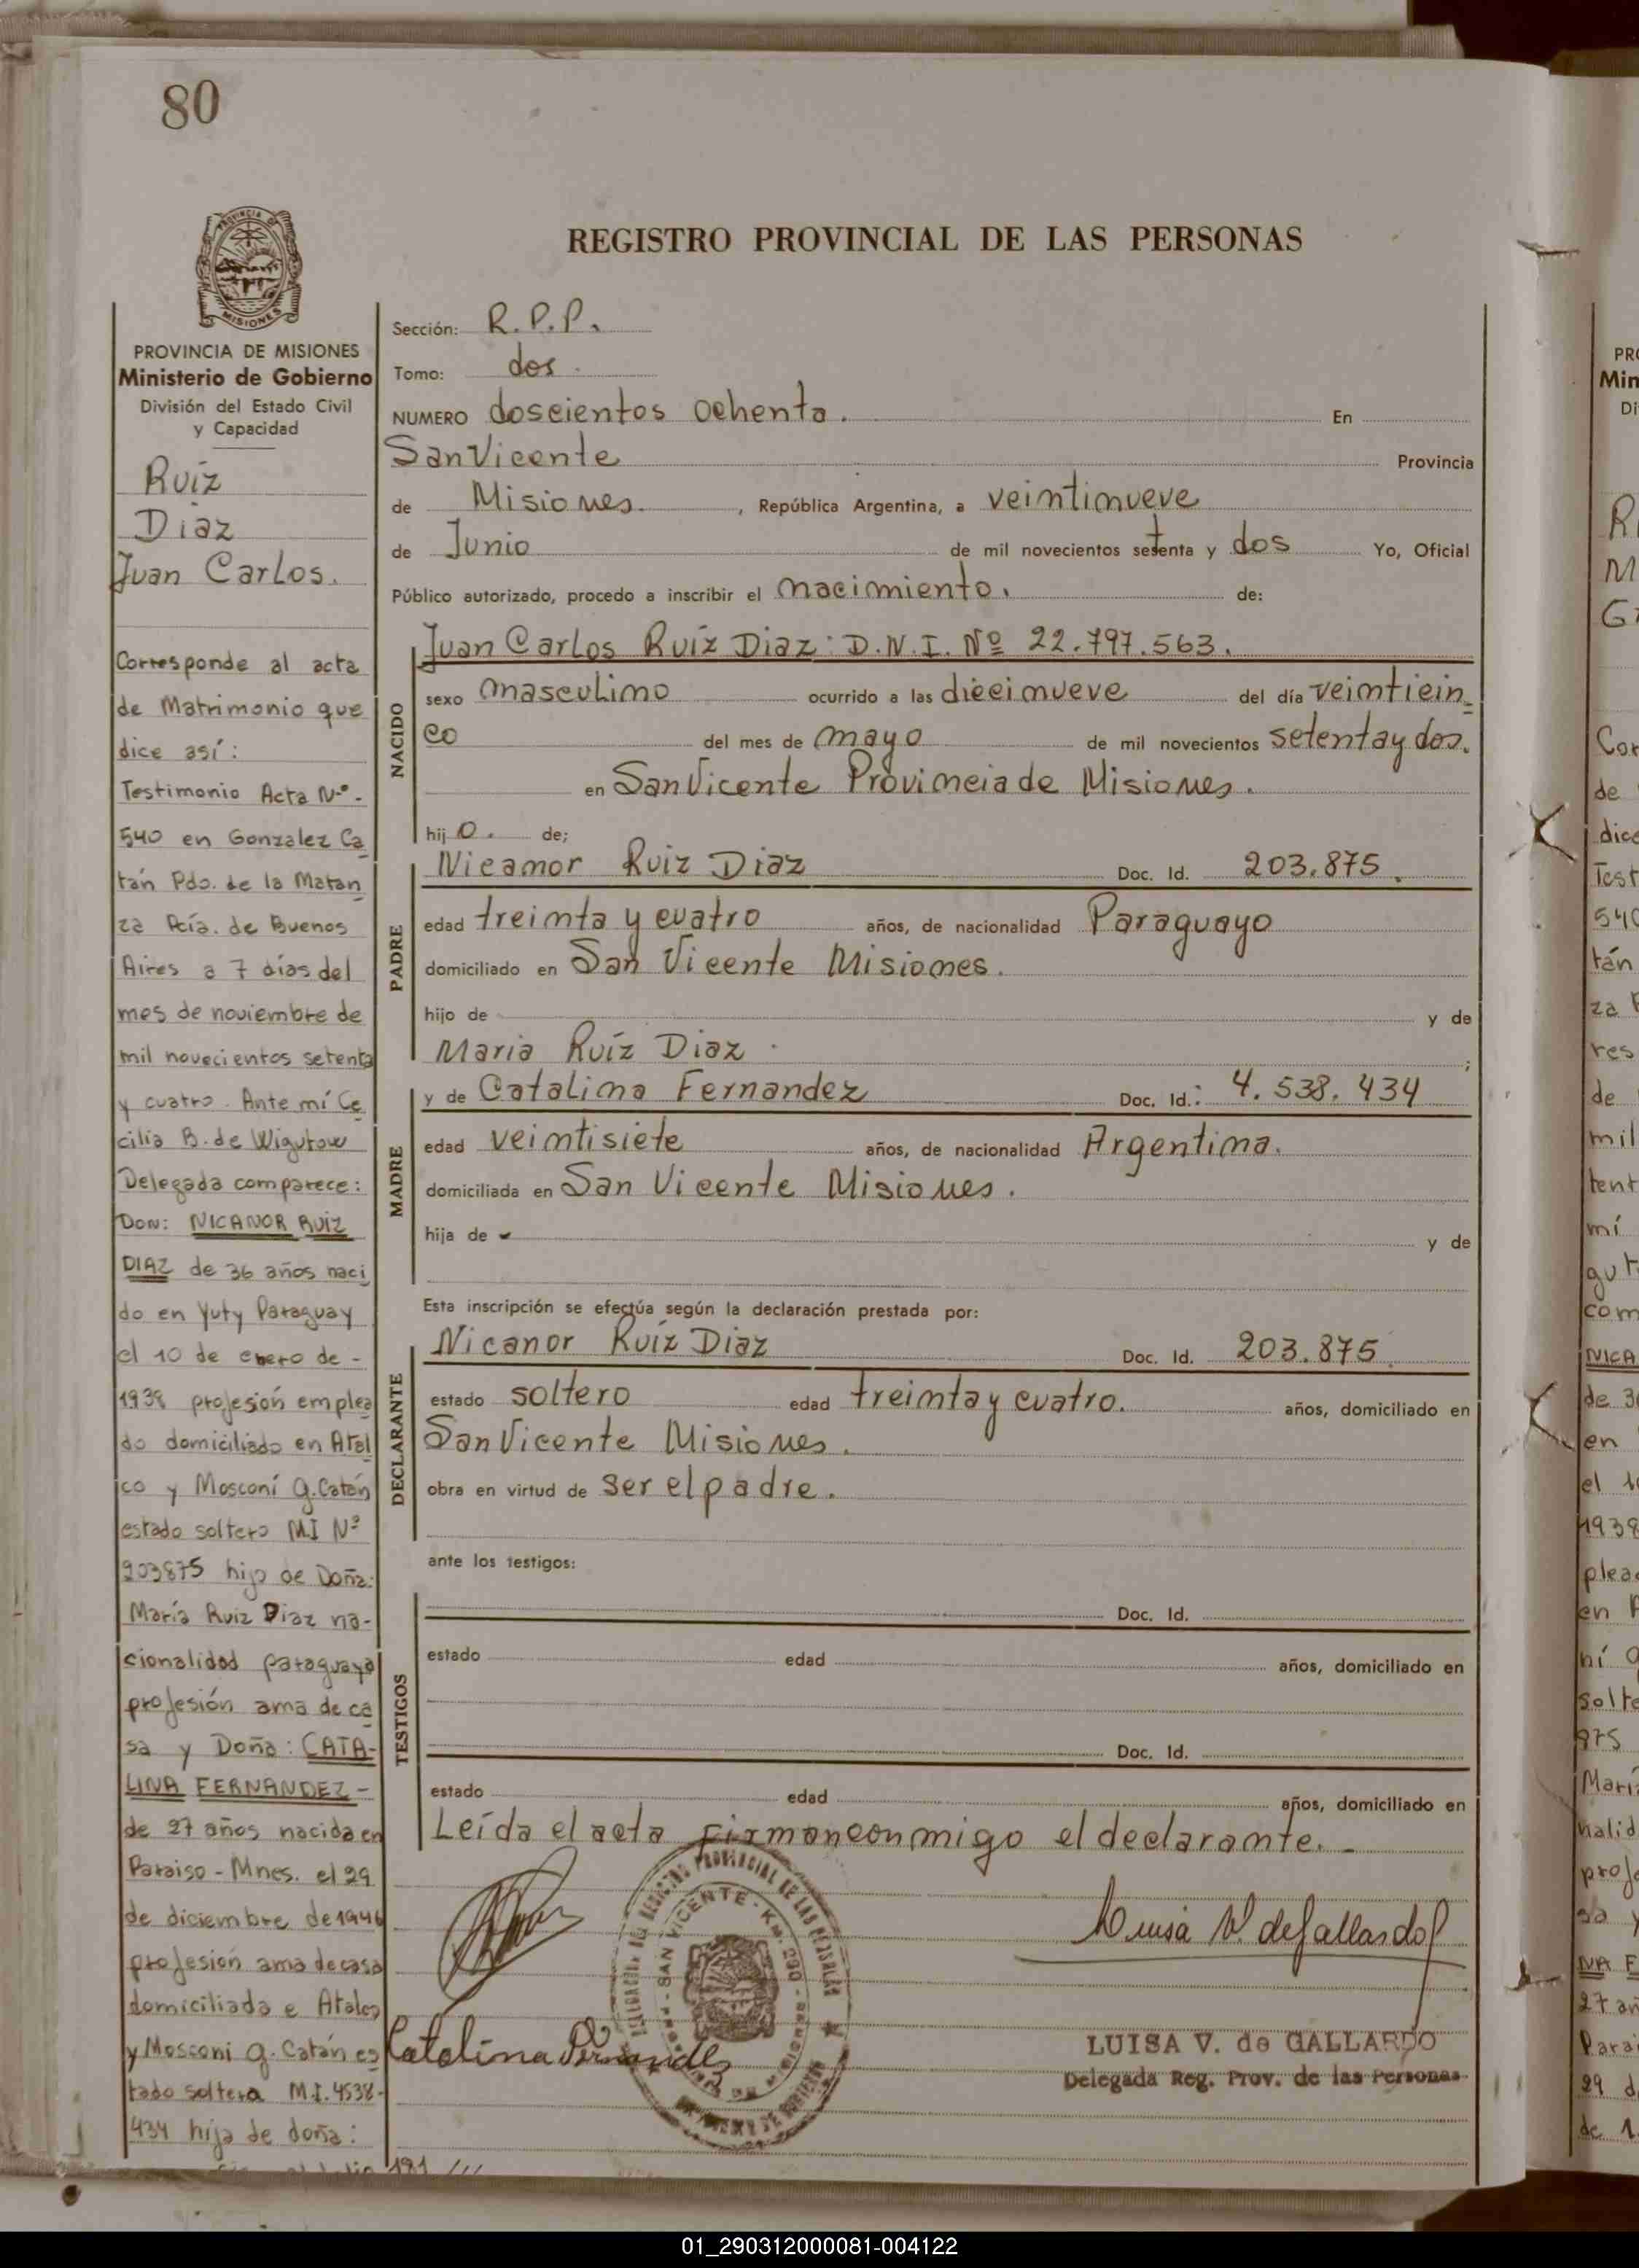 80
PROVINCIA DE
MISIONES
PROVINCIA DE MISIONES
Ministerio de Gobierno
División del Estado Civil
y Capacidad
Ruíz
Diaz
Juan Carlos.
Corresponde al acta
de Matrimonio que
dice así:
Testimonio Acta Nº.-
540 en Gonzalez Ca
tán Pdo. de la Matan
za Pcía. de Buenos
Aires a 7 días del
mes de noviembre de
mil novecientos setenta
y cuatro. Ante mí Ce
cilia B. de Wigutow
Delegada comparece:
Don: NICANOR RUIZ
DIAZ de 36 años naci
do en Yuty Paraguay
el 10 de enero de -
1938 profesión emplea
do domiciliado en Atal
co y Mosconí G. Catán
estado soltero MI Nº
203875 hijo de Doña:
María Ruiz Diaz na-
cionalidad paraguaya
profesión ama de ca
sa y Doña: CATA-
LINA FERNANDEZ -
de 27 años nacida en
Paraiso - Mnes. el 29
de diciembre de 1946
profesión ama de casa
domiciliada e Atalco
y Mosconi G. Catán es
tado soltera M.I. 4538-
434 hija de doña:
REGISTRO PROVINCIAL DE LAS PERSONAS
Sección: R.P.P.
Tomo: dos.
NUMERO doscientos ochenta. En
San Vicente Provincia
de Misiones. , República Argentina, a veintinueve
de Junio de mil novecientos setenta y dos Yo, Oficial
Público autorizado, procedo a inscribir el nacimiento. de:
NACIDO
Juan Carlos Ruíz Diaz: D.N.I. Nº 22.797.563.
sexo masculino ocurrido a las diecinueve del día veinticin=
co del mes de mayo de mil novecientos setenta y dos.
en San Vicente Provincia de Misiones.
hij o. de;
PADRE
Nicanor Ruiz Diaz Doc. Id. 203.875.
edad treinta y cuatro años, de nacionalidad Paraguayo
domiciliado en San Vicente Misiones.
hijo de y de
Maria Ruíz Diaz . ;
MADRE
y de Catalina Fernandez Doc. Id.: 4.538.434
edad veintisiete años, de nacionalidad Argentina.
domiciliada en San Vicente Misiones.
hija de y de
Esta inscripción se efectúa según la declaración prestada por:
DECLARANTE
Nicanor Ruíz Diaz Doc. Id. 203.875.
estado soltero edad treinta y cuatro. años, domiciliado en
San Vicente Misiones.
obra en virtud de ser el padre.
ante los testigos:
TESTIGOS
Doc. Id.
estado edad años, domiciliado en
Doc. Id.
estado edad años, domiciliado en
Leída el acta firman conmigo el declarante. -
Luisa V. de Gallardo
Catalina Fernandez
REGISTRO PROVINCIAL DE LAS PERSONAS
SAN VICENTE - Km. 290
LUISA V. de GALLARDO
Delegada Reg. Prov. de las Personas
191 ///
PR
Min
Di
R
M
G
Cor
de
dice
Test
540
tán
za
res
de
mil
tent
mí
gut
com
NICA
de 36
en
el
1938
plea
en
ní
solte
875
Marí
nalid
profe
sa y
NA F
27 añ
Parai
29 d
de 1
01_290312000081-004122